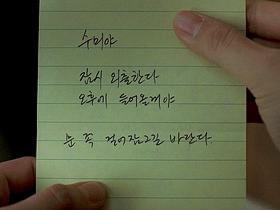 수미야
잠시 외출한다
오후에 들어올게야
문 꼭 걸어잠그길 바란다.